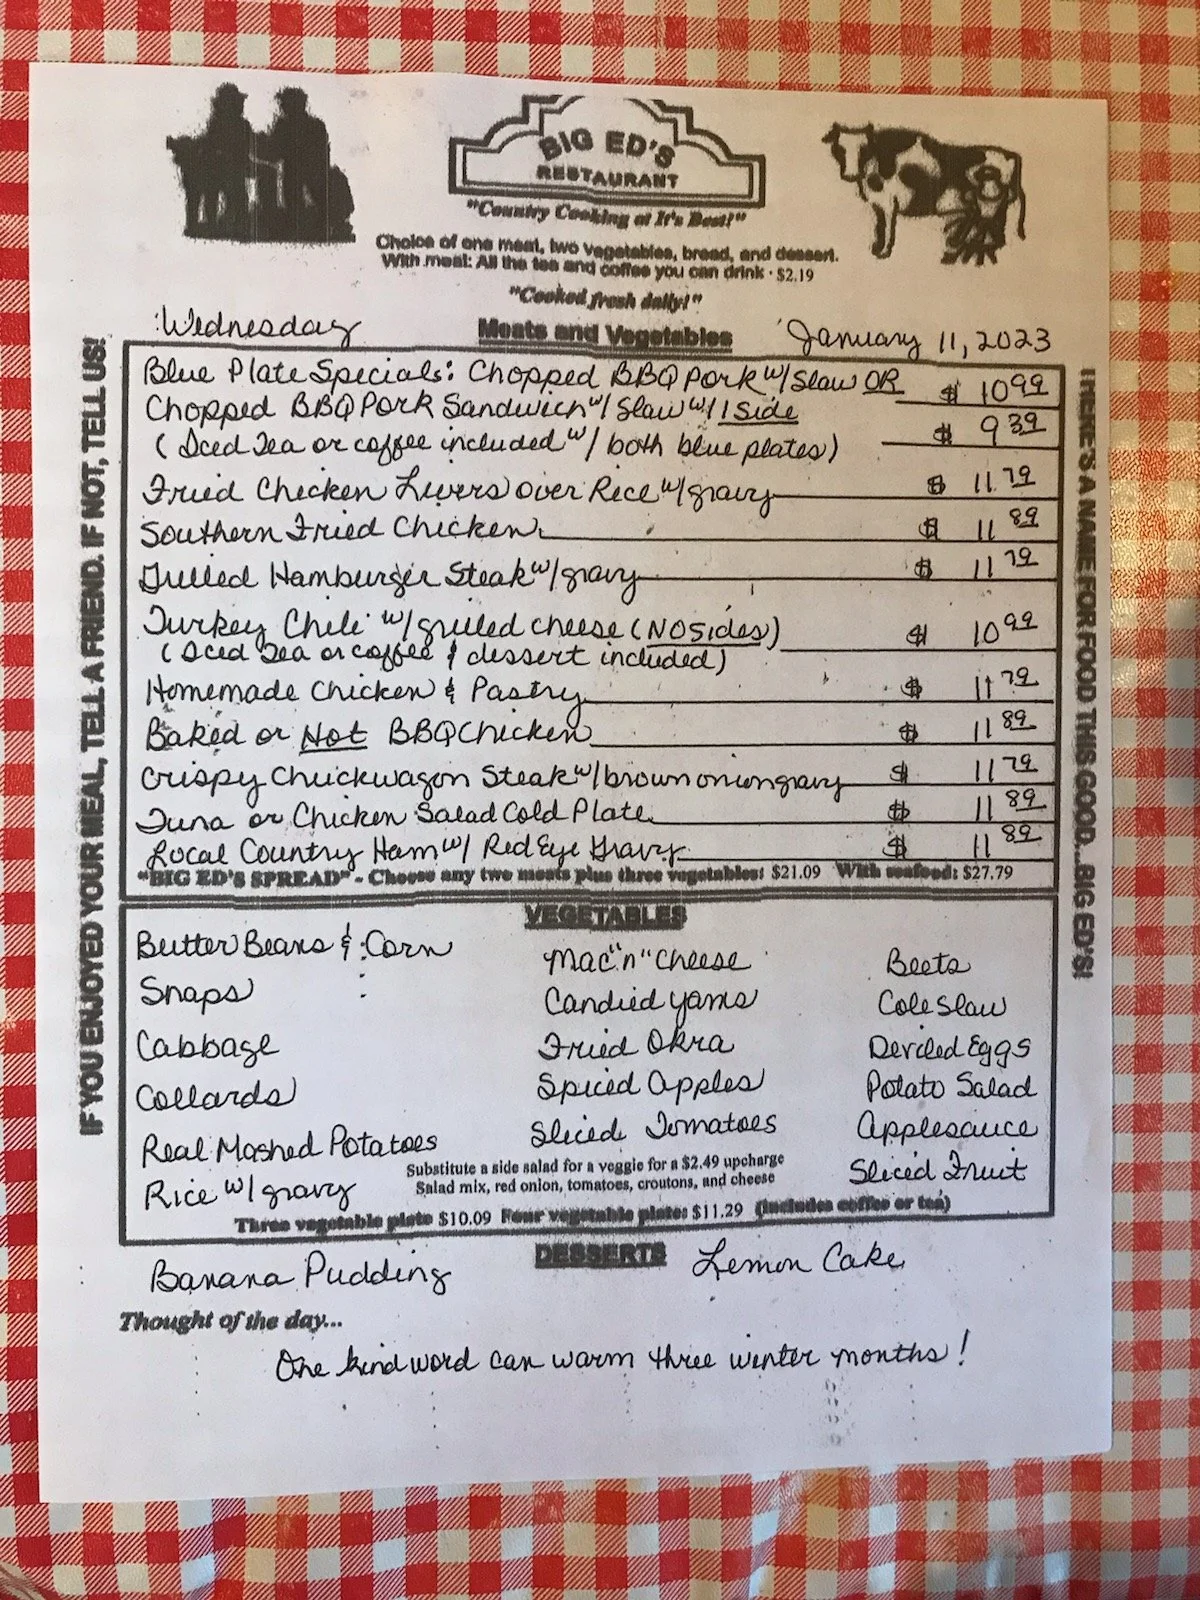 BIG ED'S
RESTAURANT
"Country Cooking at It's Best!"
Choice of one meat, two vegetables, bread, and dessert.
With meal: All the tea and coffee you can drink · $2.19
"Cooked fresh daily!"
Wednesday
Meats and Vegetables
January 11, 2023
IF YOU ENJOYED YOUR MEAL, TELL A FRIEND. IF NOT, TELL US!
Blue Plate Specials: Chopped BBQ Pork w/ Slaw OR $ 10.99
Chopped BBQ Pork Sandwich w/ Slaw w/ 1 Side $ 9.39
(Iced Tea or coffee included w/ both blue plates)
Fried Chicken Livers over Rice w/ gravy $ 11.79
Southern Fried Chicken $ 11.89
Grilled Hamburger Steak w/ gravy $ 11.79
Turkey Chili w/ grilled cheese (NO Sides) $ 10.99
(Iced Tea or coffee & dessert included)
Homemade Chicken & Pastry $ 11.79
Baked or Hot BBQ Chicken $ 11.89
Crispy Chuckwagon Steak w/ brown onion gravy $ 11.79
Tuna or Chicken Salad Cold Plate $ 11.89
Local Country Ham w/ Red Eye Gravy $ 11.89
"BIG ED'S SPREAD" - Choose any two meats plus three vegetables! $21.09 With seafood: $27.79
THERE'S A NAME FOR FOOD THIS GOOD...BIG ED'S!
VEGETABLES
Butter Beans & Corn
Snaps
Cabbage
Collards
Real Mashed Potatoes
Rice w/ gravy
Mac "n" Cheese
Candied yams
Fried Okra
Spiced Apples
Sliced Tomatoes
Beets
Cole Slaw
Deviled Eggs
Potato Salad
Applesauce
Sliced Fruit
Substitute a side salad for a veggie for a $2.49 upcharge
Salad mix, red onion, tomatoes, croutons, and cheese
Three vegetable plate $10.09 Four vegetable plate: $11.29 (includes coffee or tea)
DESSERTS
Banana Pudding
Lemon Cake
Thought of the day...
One kind word can warm three winter months!